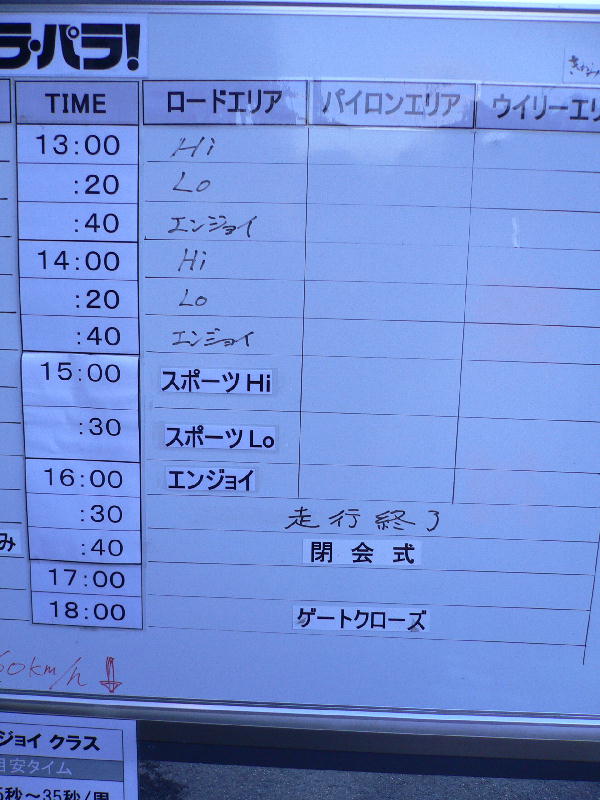 ラ・パラ!
TIME ロードエリア パイロンエリア ウイリーエリ
13:00 Hi
:20 Lo
:40 エンジョイ
14:00 Hi
:20 Lo
:40 エンジョイ
15:00 スポーツ Hi
:30 スポーツ Lo
16:00 エンジョイ
:30 走行終了
み :40 閉会式
17:00
18:00 ゲートクローズ
60km/h ↓
ジョイ クラス
目安タイム
5秒〜35秒/周